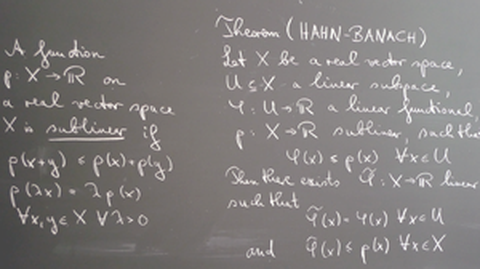 A function
p: X → ℝ on
a real vector space
X is sublinear if
p(x+y) ≤ p(x)+p(y)
p(λx) = λ p(x)
∀x,y ∈ X ∀λ>0
Theorem (HAHN-BANACH)
Let X be a real vector space,
U ⊆ X a linear subspace,
φ: U → ℝ a linear functional,
p: X → ℝ sublinear, such that
φ(x) ≤ p(x) ∀x ∈ U
Then there exists φ̃: X → ℝ linear
such that
φ̃(x) = φ(x) ∀x ∈ U
and φ̃(x) ≤ p(x) ∀x ∈ X